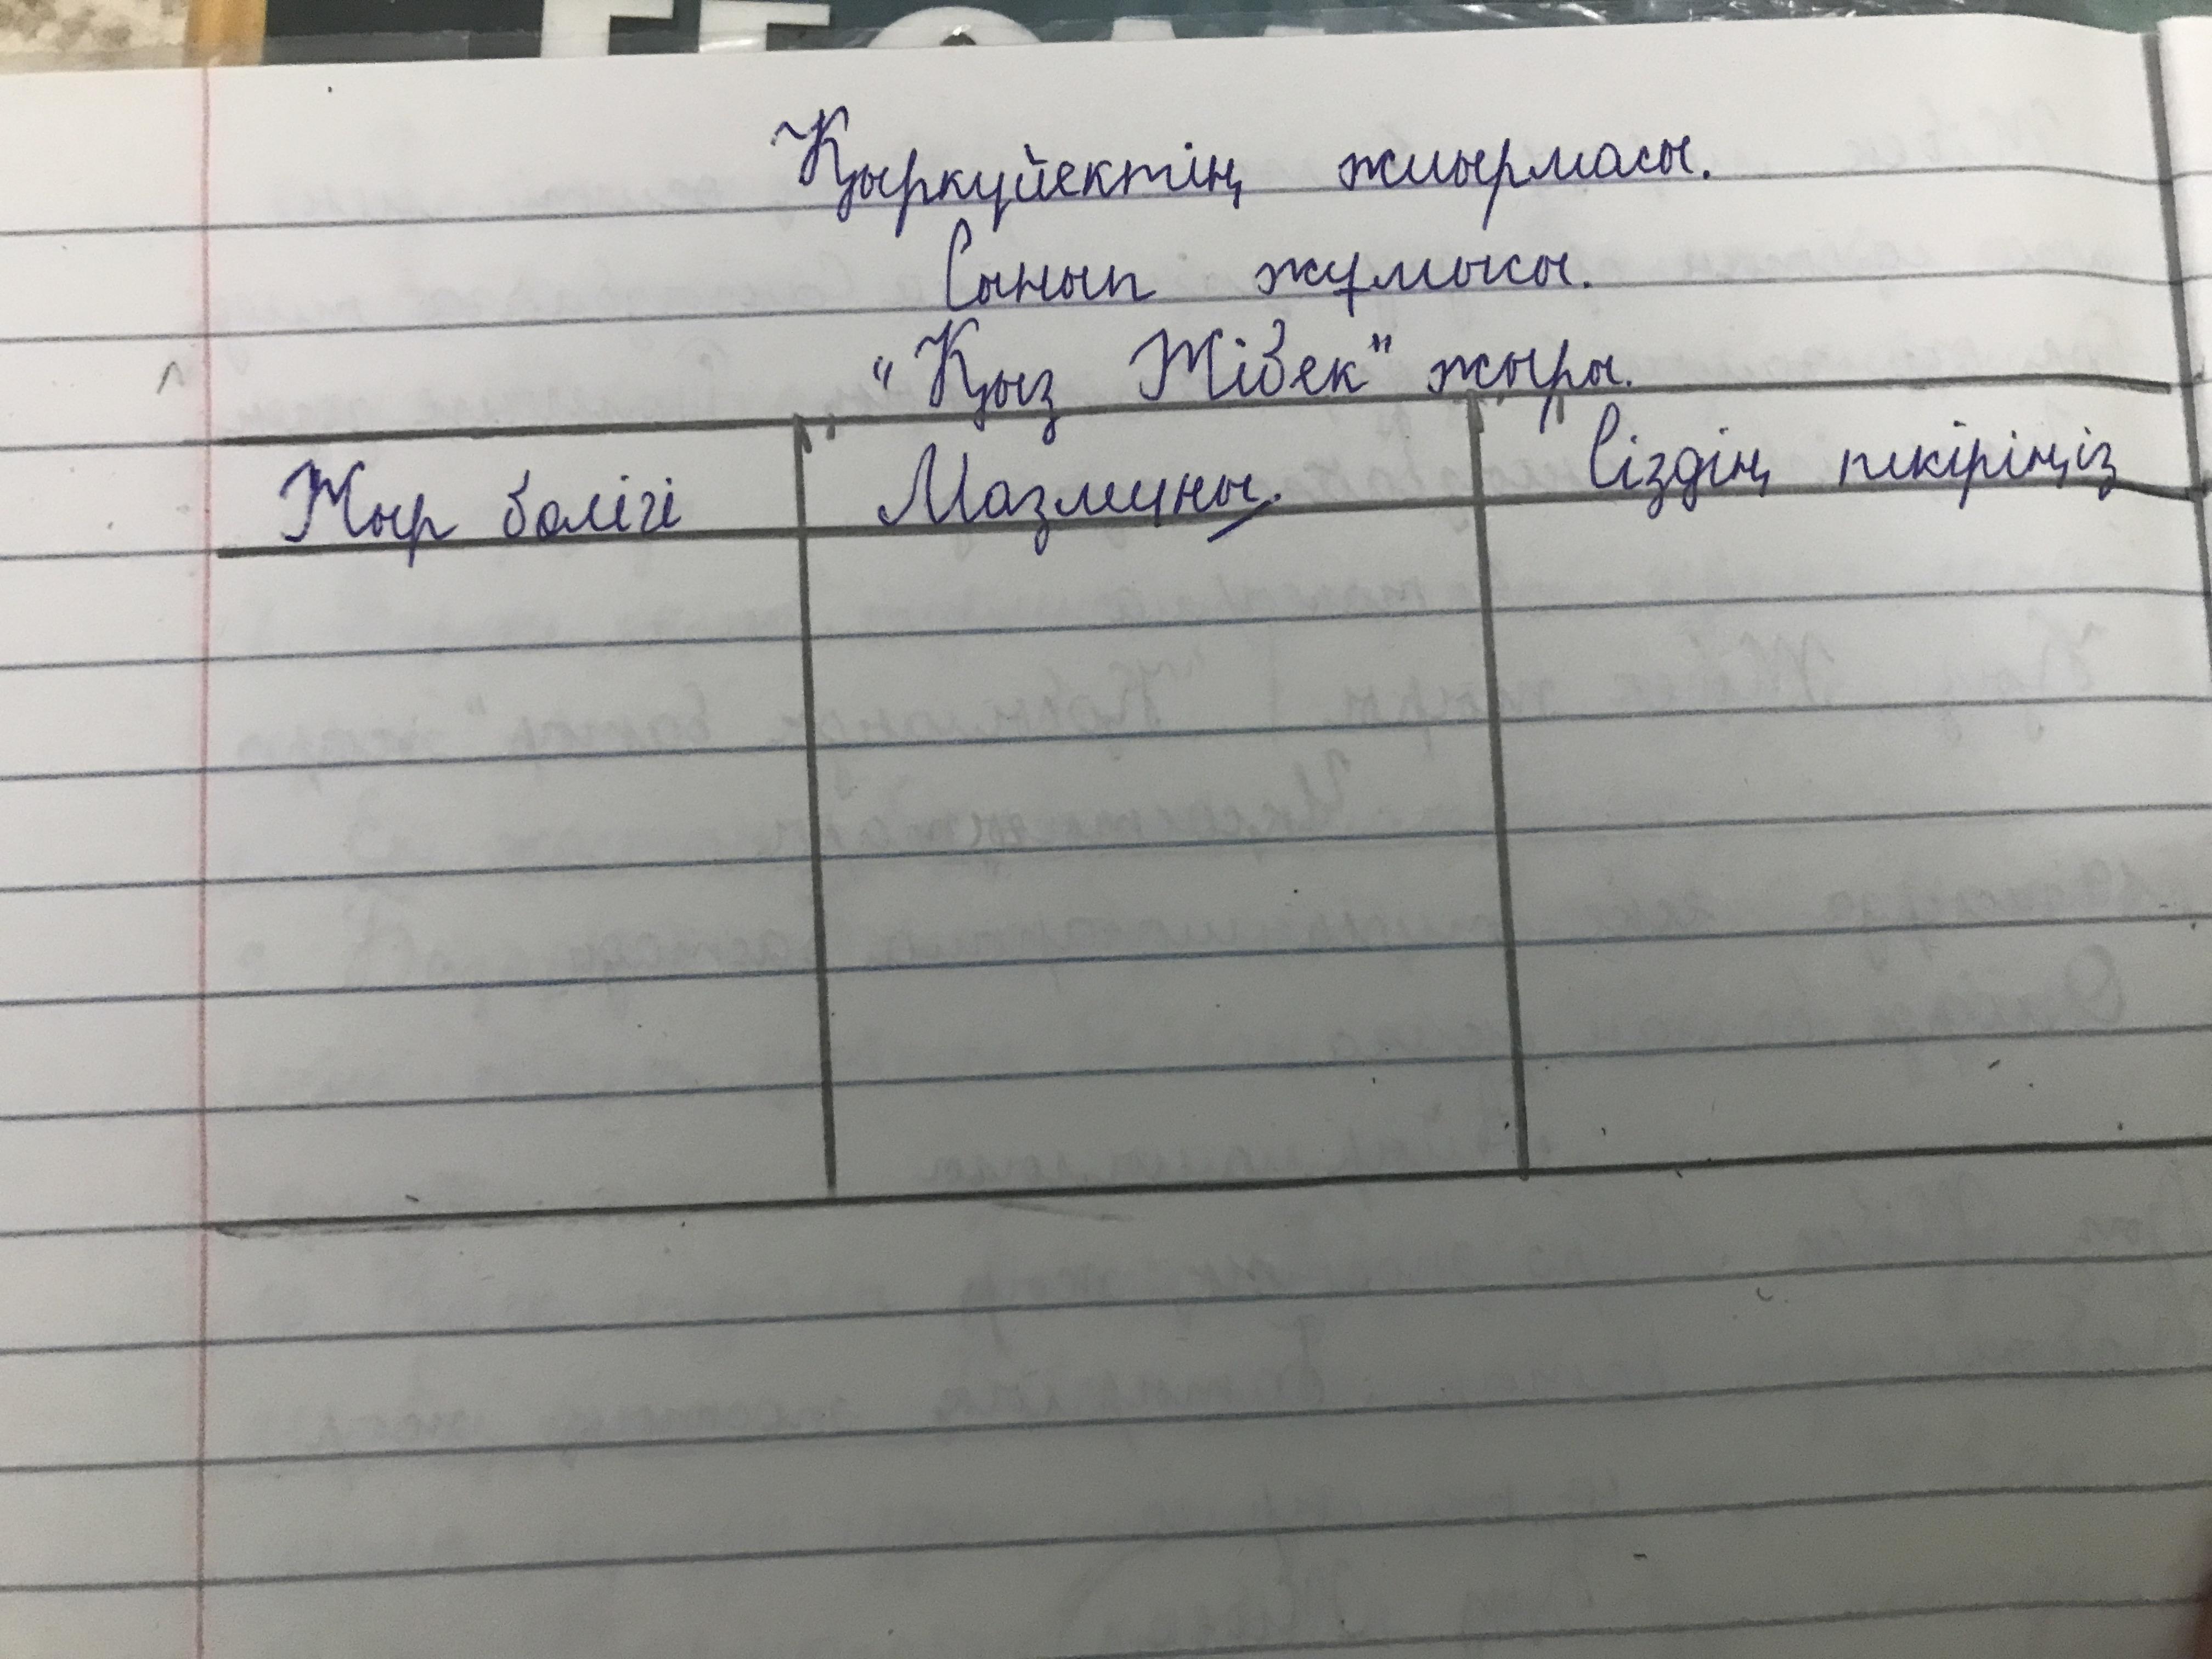 Қыркүйектің жиырмасы.
Сынып жұмысы.
"Қыз Жібек" жыры.
Жыр бөлігі Мазмұны. Сіздің пікіріңіз